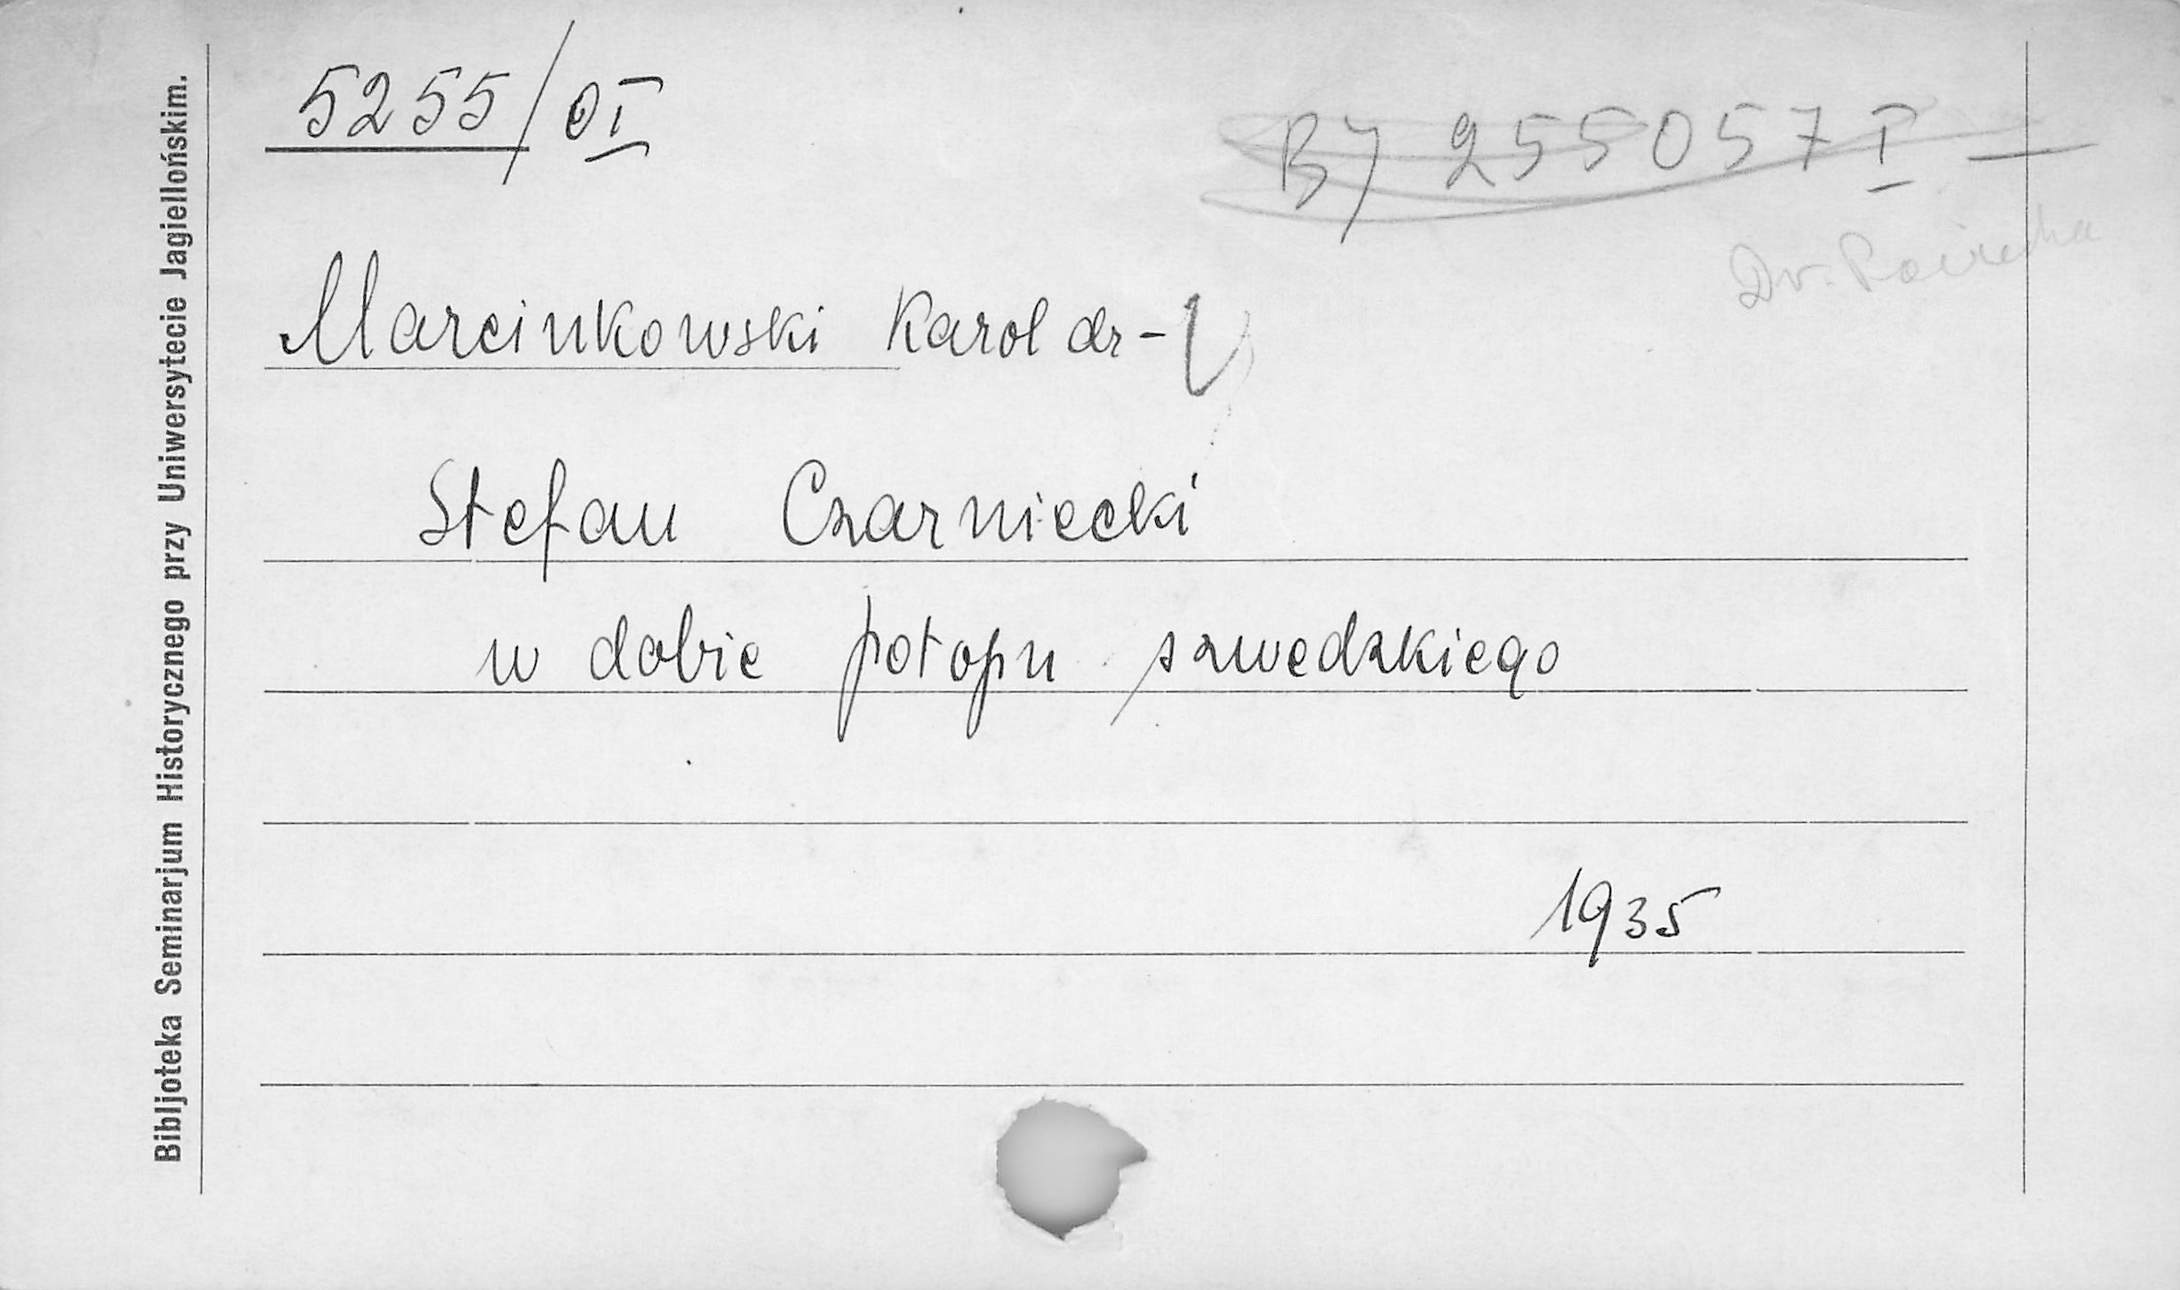 Bibljoteka Seminarjum Historycznego przy Uniwersytecie Jagiellońskim.
5255/OI
BJ 255057 I
Dr.
Marcinkowski Karol dr-
Stefan Czarniecki
w dobie potopu szwedzkiego
1935